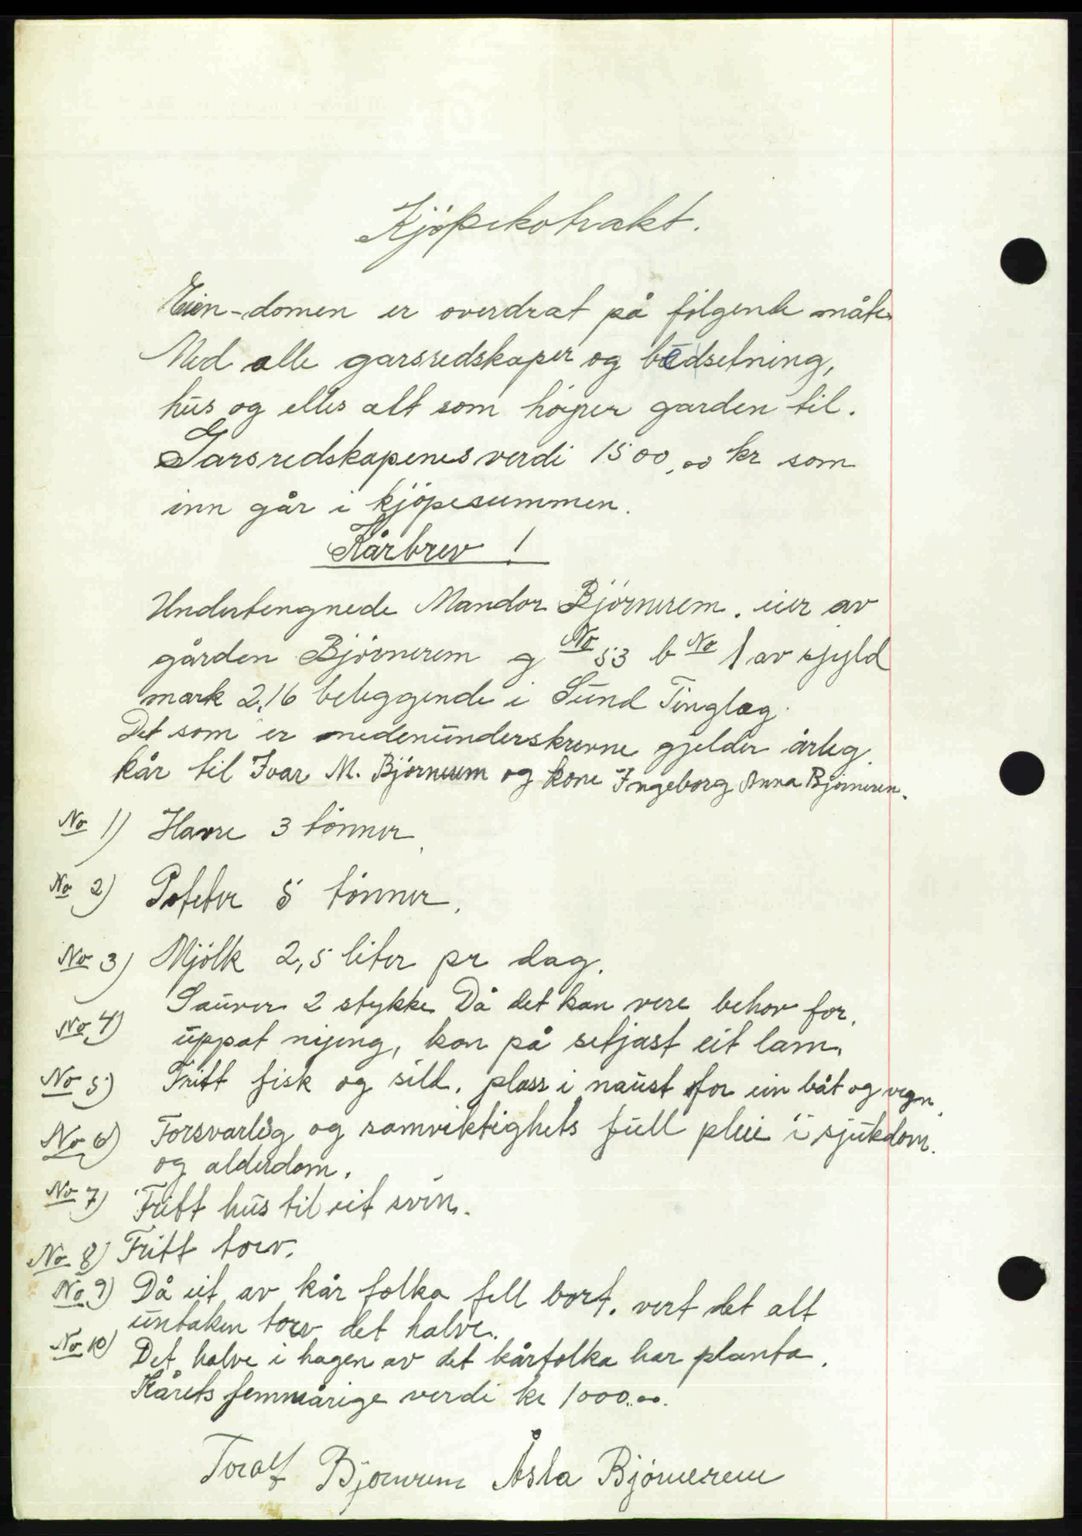 Kjöpekotrakt.
Eien-domen er overdrat på fölgende måte.
Med alle garsredskaper og bedsetning,
hus og elles alt som höyrer garden til.
Garsredskapenes verdi 1500,00 kr som
inn går i kjöpesummen.
Kårbrev !
Undertengnede Mandor Björnerem. eier av
gården Björnerem g No 53 b No 1 av sjyld
mark 2,16 beleggende i Sund Tinglag.
Det som er nedenunderskrevne gjelder årleg
kår til Ivar M. Björnerem og kone Ingeborg Anna Björnerem.
No 1) Havre 3 tönner.
No 2) Poteter 5 tönner.
No 3) Mjölk 2,5 liter pr dag.
No 4) Sauer 2 stykke Då det kan vere behov for.
uppat nijing, kan på setjast eit lam.
No 5) Fritt fisk og sild. plass i naust for ein båt og vegn.
No 6) Forsvarleg og samviktighets full pleie i sjukdom.
og alderdom.
No 7) Fritt hus til eit svin.
No 8) Fritt torv.
No 9) Då eit av kår folka fell bort. vert det alt
untaken torv det halve.
No 10) Det halve i hagen av det kårfolka har planta.
Kårets femmårige verdi kr 1000.00.
Toralf Björnerem Åsta Björnerem